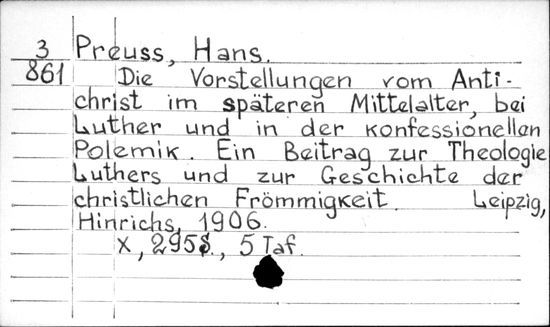 3 Preuss, Hans.
861 Die Vorstellungen vom Anti-
christ im späteren Mittelalter, bei
Luther und in der konfessionellen
Polemik. Ein Beitrag zur Theologie
Luthers und zur Geschichte der
christlichen Frömmigkeit. Leipzig,
Hinrichs, 1906.
X, 295S., 5 Taf.